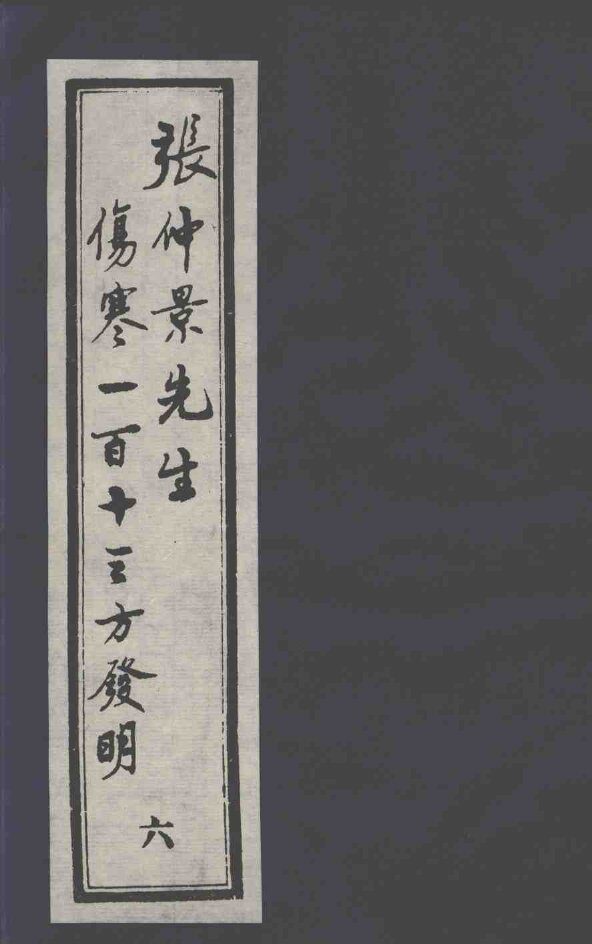 張仲景先生
傷寒一百十三方發明
六